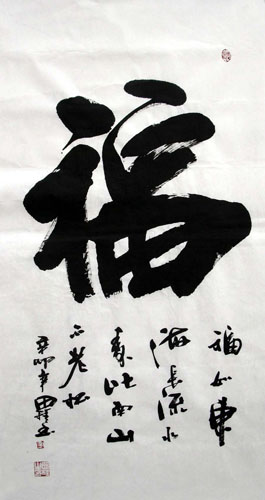 福
福如東
海長流水
壽比南山
不老松
辛卯年